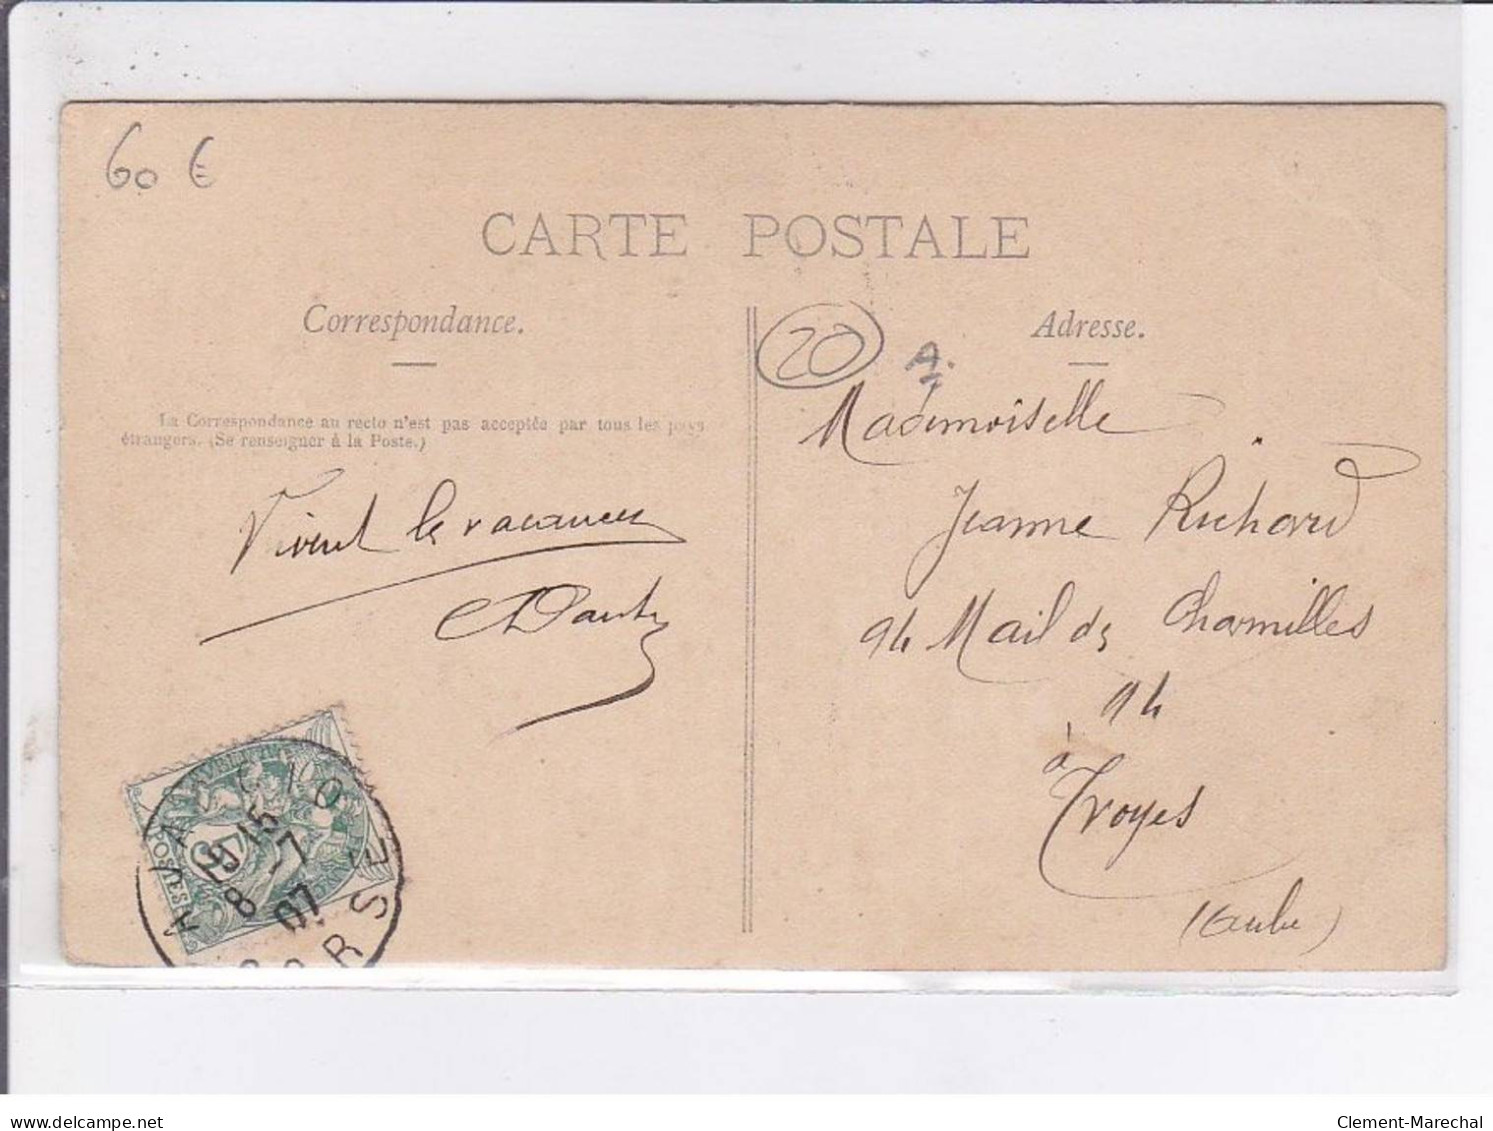 60 €
CARTE POSTALE
Correspondance.
La Correspondance au recto n'est pas acceptée par tous les pays
étrangers. (Se renseigner à la Poste.)
Vivent les vacances
20
A.
Adresse.
Mademoiselle
Jeanne Richard
94 Mail des Charmilles
94
à
Troyes
(Aube)
AJACCIO
8 15
15 -7
07
CORSE
POSTES
delcampe.net
Clement-Marechal